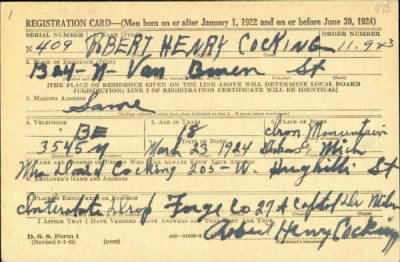 975
REGISTRATION CARD—(Men born on or after January 1, 1922 and on or before June 30, 1924)
SERIAL NUMBER 1. NAME ORDER NUMBER
N 409 ROBERT HENRY COCKING 11,943
2. PLACE OF RESIDENCE
1324 - N - Van Buren St
[THE PLACE OF RESIDENCE GIVEN ON THE LINE ABOVE WILL DETERMINE LOCAL BOARD
JURISDICTION; LINE 2 OF REGISTRATION CERTIFICATE WILL BE IDENTICAL]
3. MAILING ADDRESS
Same
4. TELEPHONE 5. AGE IN YEARS 6. PLACE OF BIRTH
BE 18 Iron Mountain
3545 March 23 1924 Mich
7. NAME AND ADDRESS OF PERSON WHO WILL ALWAYS KNOW YOUR ADDRESS
Cocking 205 - W. St
8. EMPLOYER'S NAME AND ADDRESS
Interstate Drop Forge Co 27 & Capitol Dr
I AFFIRM THAT I HAVE VERIFIED ABOVE ANSWERS AND THAT THEY ARE TRUE.
D. S. S. Form 1
(Revised 6-1-42) (over)
Robert Henry Cocking